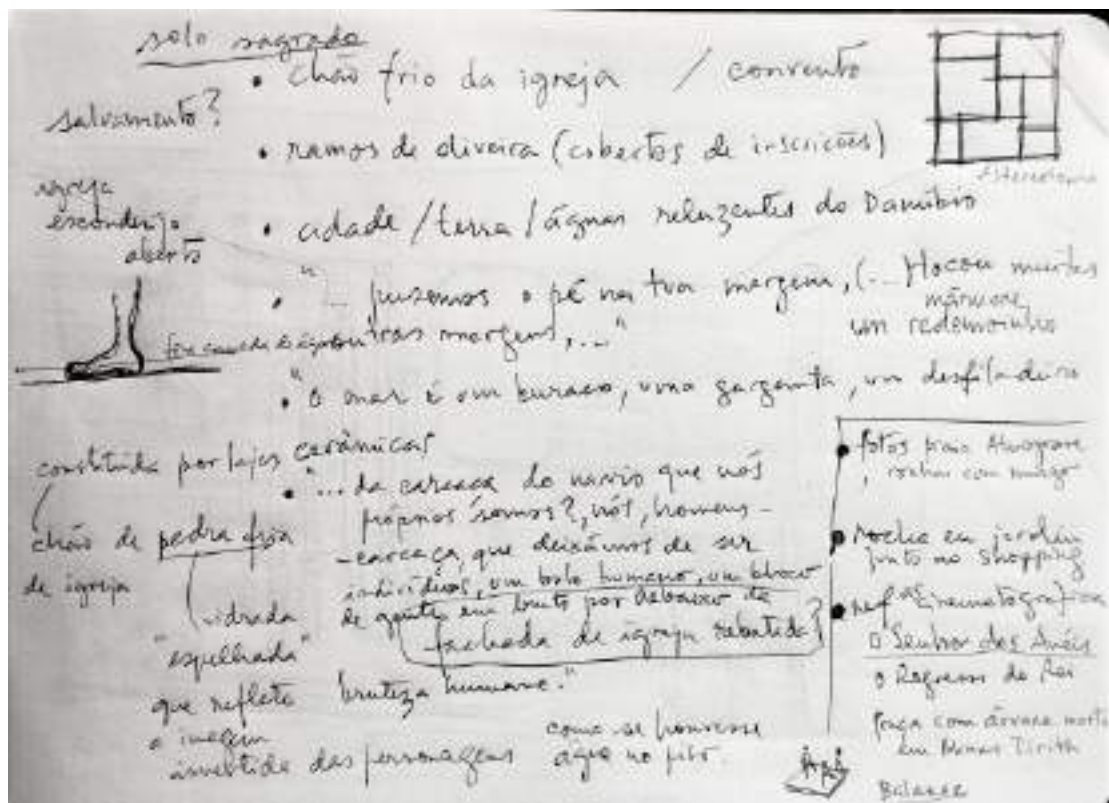 solo sagrado
• chão frio da igreja / convento
salvamento?
• ramos de oliveira (cobertos de inscrições)
igreja
esconderijo
aberto
• cidade / terra / águas reluzentes do Danúbio
• "... pusemos o pé na tua margem, (...) tocou muitas
outras margens,..."
mármore
um redemoinho
• "o mar é um buraco, uma garganta, um desfiladeiro
constituída por lajes cerâmicas
chão de pedra fria
de igreja
vidrada
"espelhada"
que reflete
a imagem
invertida das personagens
como se houvesse
água no piso.
• "... da carcaça do navio que nós
próprios somos?, nós, homens-
-carcaça, que deixámos de ser
indivíduos, um bolo humano, um bloco
de gente em bruto por debaixo da
fachada de igreja rebatida?
bruteza humana."
• fotos praia Almograve
rochas com musgo
• rocha em jardim
junto ao shopping
• refªs cinematográficas
O Senhor dos Anéis
O Regresso do Rei
praça com árvore morta
em Minas Tirith